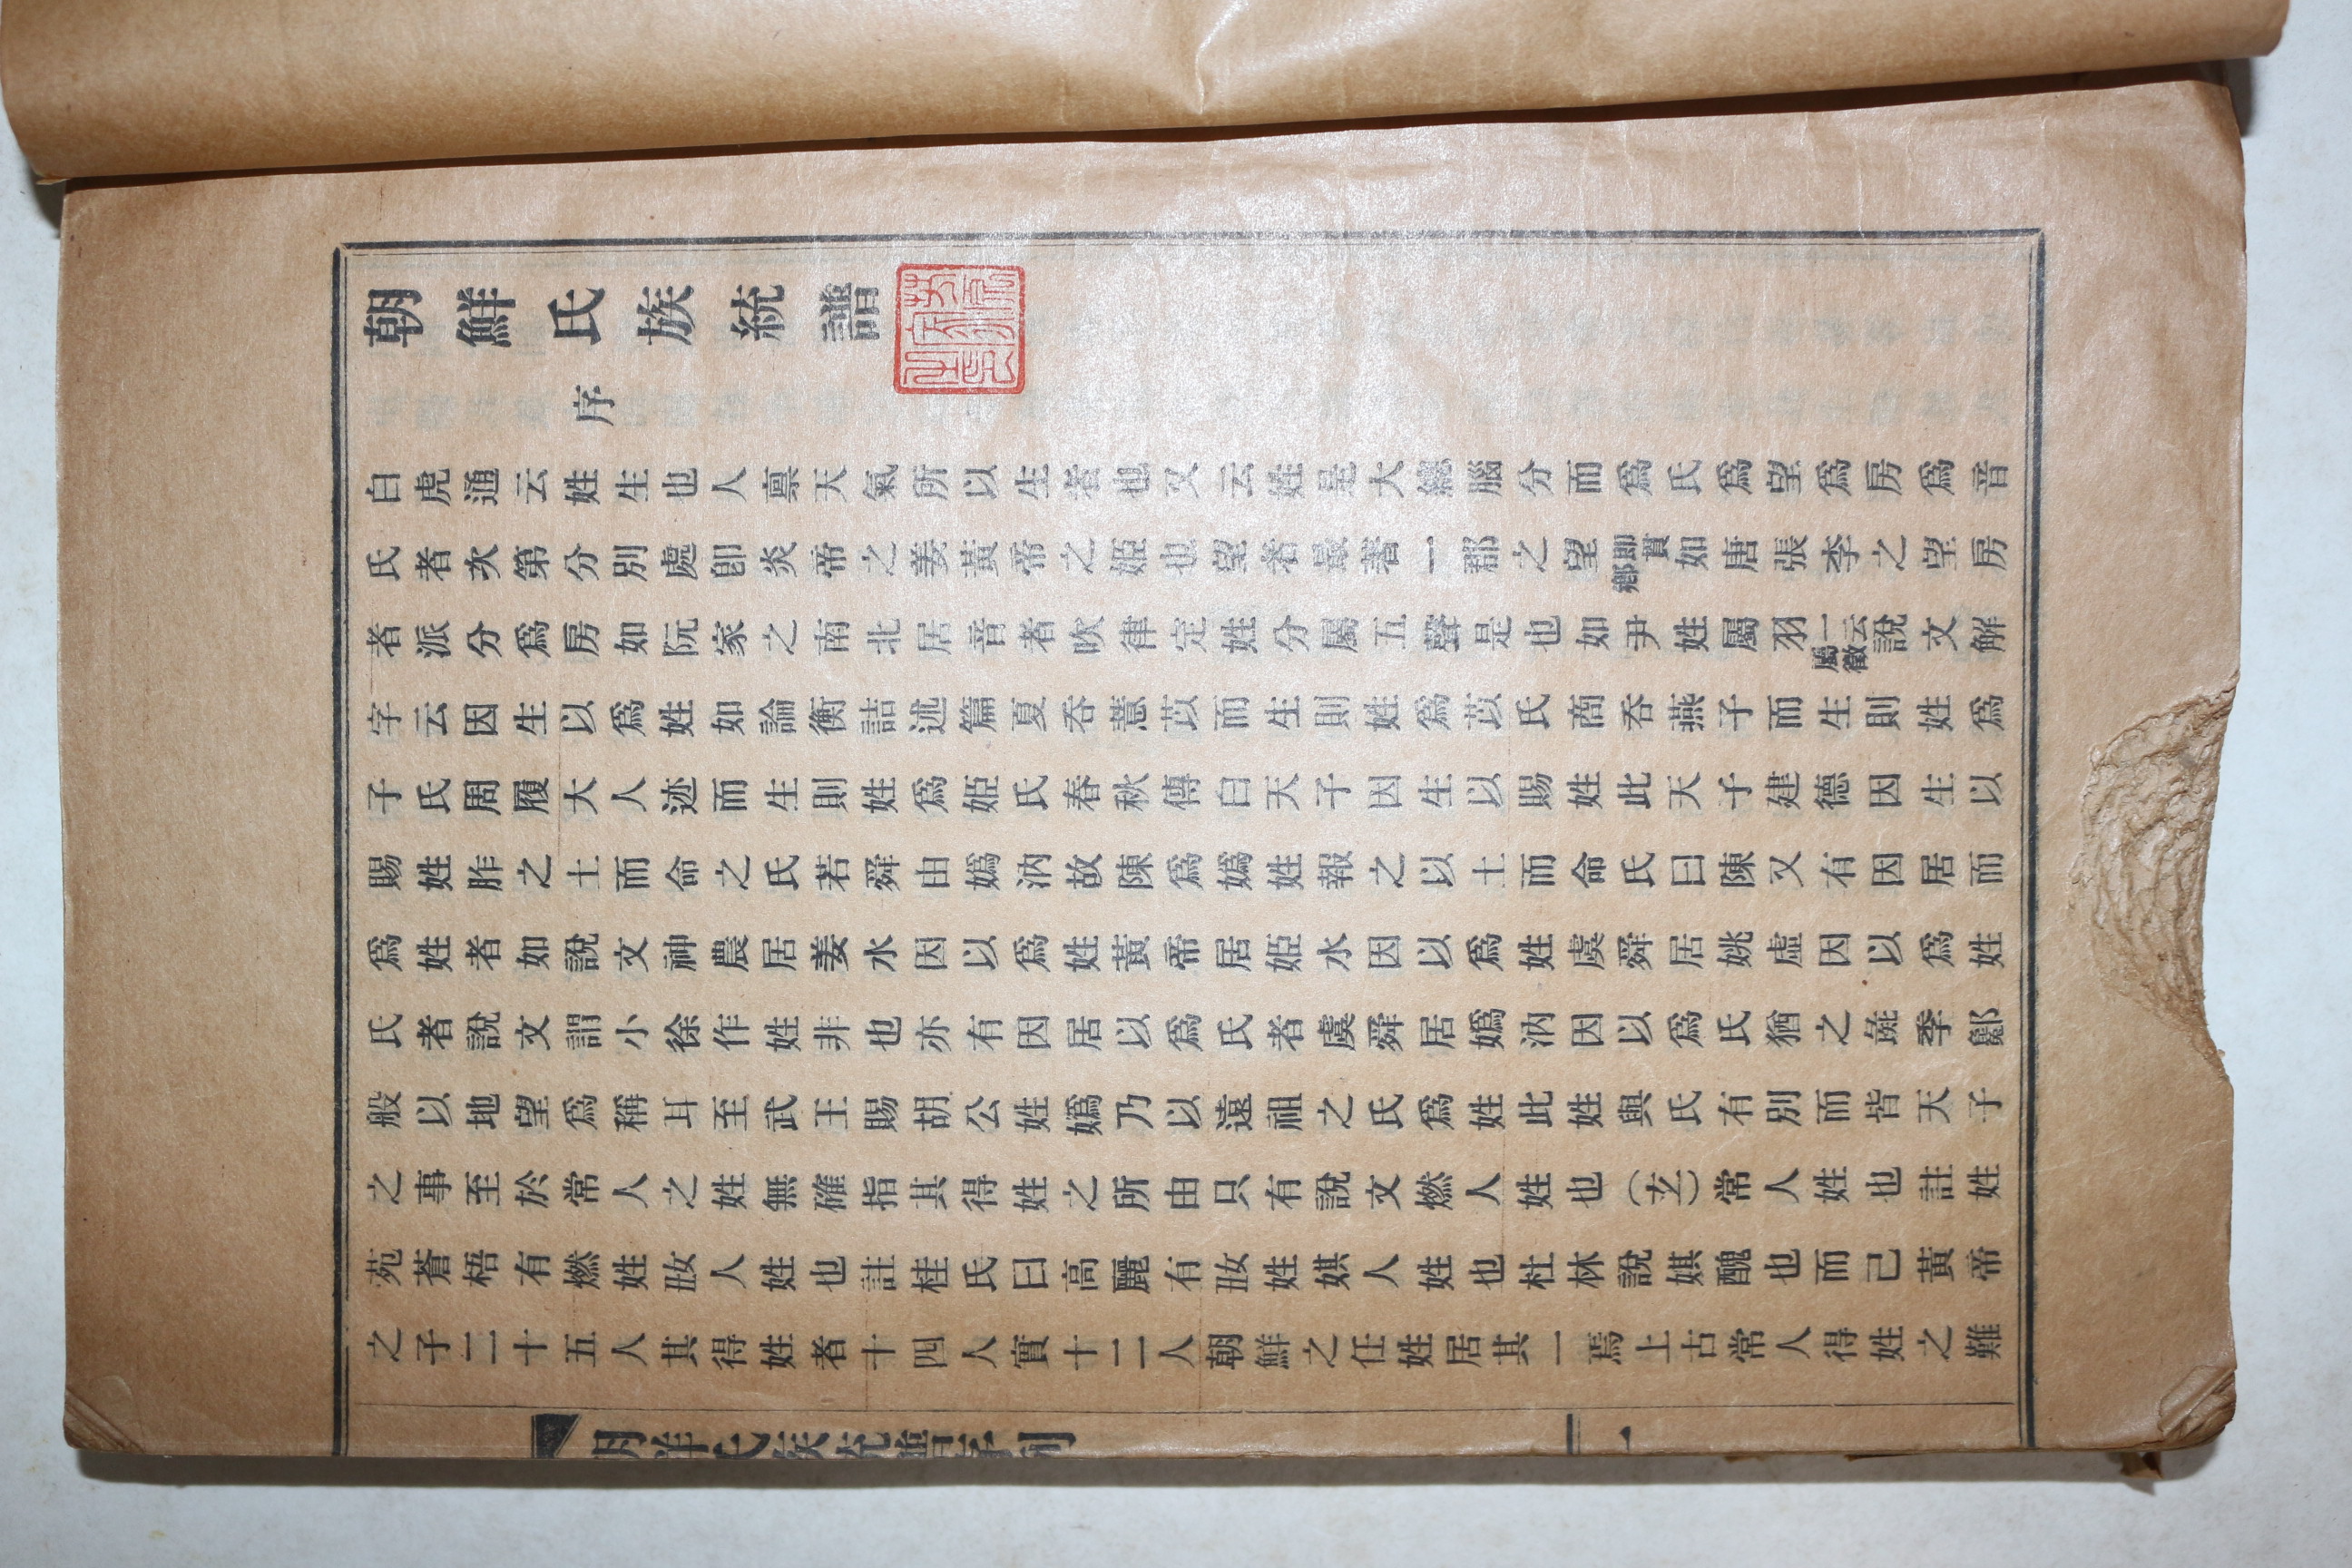 朝鮮氏族統譜
序
白虎通云姓生也人禀天氣所以生者也又云姓是大總腦分而爲氏爲望爲房爲音
氏者次第分別處卽炎帝之姜黃帝之姬也望者最著一郡之望卽貫鄕如唐張李之望房
者派分爲房如阮家之南北居音者吹律定姓分屬五聲是也如尹姓屬羽一云屬徵說文解
字云因生以爲姓如論衡詰述篇夏呑薏苡而生則姓爲苡氏商呑燕子而生則姓爲
子氏周履大人迹而生則姓爲姬氏春秋傳白天子因生以賜姓此天子建德因生以
賜姓胙之土而命之氏若舜由嬀汭故陳爲嬀姓報之以土而命氏曰陳又有因居而
爲姓者如說文神農居姜水因以爲姓黃帝居姬水因以爲姓虞舜居姚虛因以爲姓
氏者說文謂小徐作姓非也亦有因居以爲氏者虞舜居嬀汭因以爲氏猶之彘季鄭
般以地望爲稱耳至武王賜胡公姓嬀乃以遠祖之氏爲姓此姓與氏有別而皆天子
之事至於常人之姓無確指其得姓之所由只有說文燃人姓也(尐)常人姓也註姓
苑蒼梧有燃姓㚢人姓也註桂氏曰高麗有㚢姓娸人姓也杜林說娸醜也而己黃帝
之子二十五人其得姓者十四人實十二人朝鮮之任姓居其一焉上古常人得姓之難